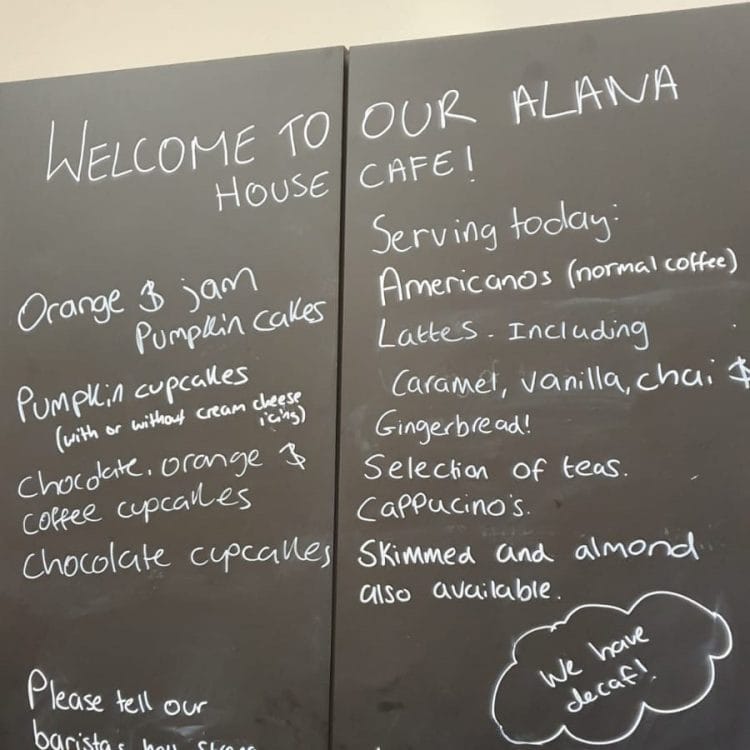 WELCOME TO OUR ALANA
HOUSE CAFE!
Orange & jam
Pumpkin cakes
Pumpkin cupcakes
(with or without cream cheese
icing)
Chocolate, orange &
coffee cupcakes
Chocolate cupcakes
Please tell our
baristas how
Serving today:
Americanos (normal coffee)
Lattes. Including
Caramel, vanilla, chai &
Gingerbread!
Selection of teas.
Cappucino's.
Skimmed and almond
also available.
We have
decaf!